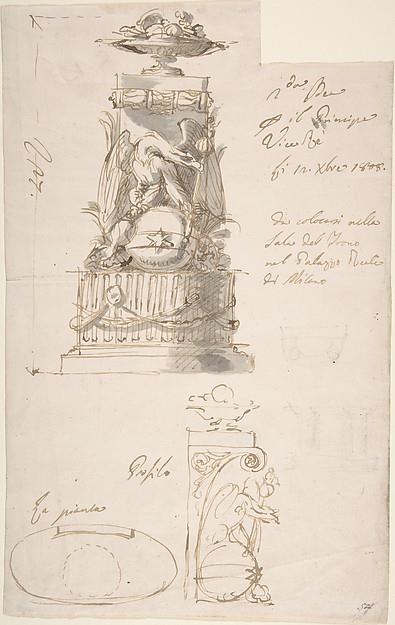 il Principe
Vice Rè
li 12. Xbre 1808.
da colocarsi nella
Sala del Trono
nel Palazzo Reale
di Milano
Profilo
La pianta